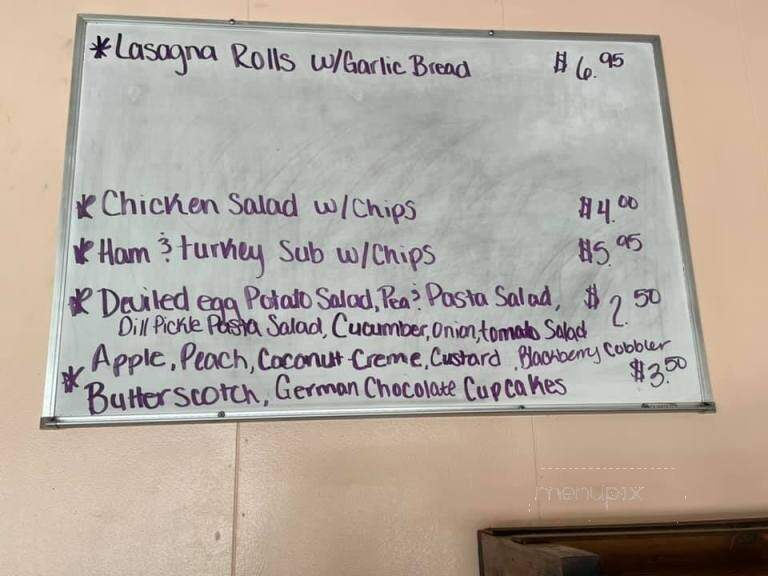 * Lasagna Rolls w/Garlic Bread $6.95
* Chicken Salad w/Chips $4.00
* Ham & turkey Sub w/Chips $5.95
* Deviled egg Potato Salad, Pea & Pasta Salad, $2.50
Dill Pickle Pasta Salad, Cucumber, onion, tomato Salad
Apple, Peach, Coconut Creme, Custard, Blackberry Cobbler
* Butterscotch, German Chocolate Cupcakes $3.50
menupix